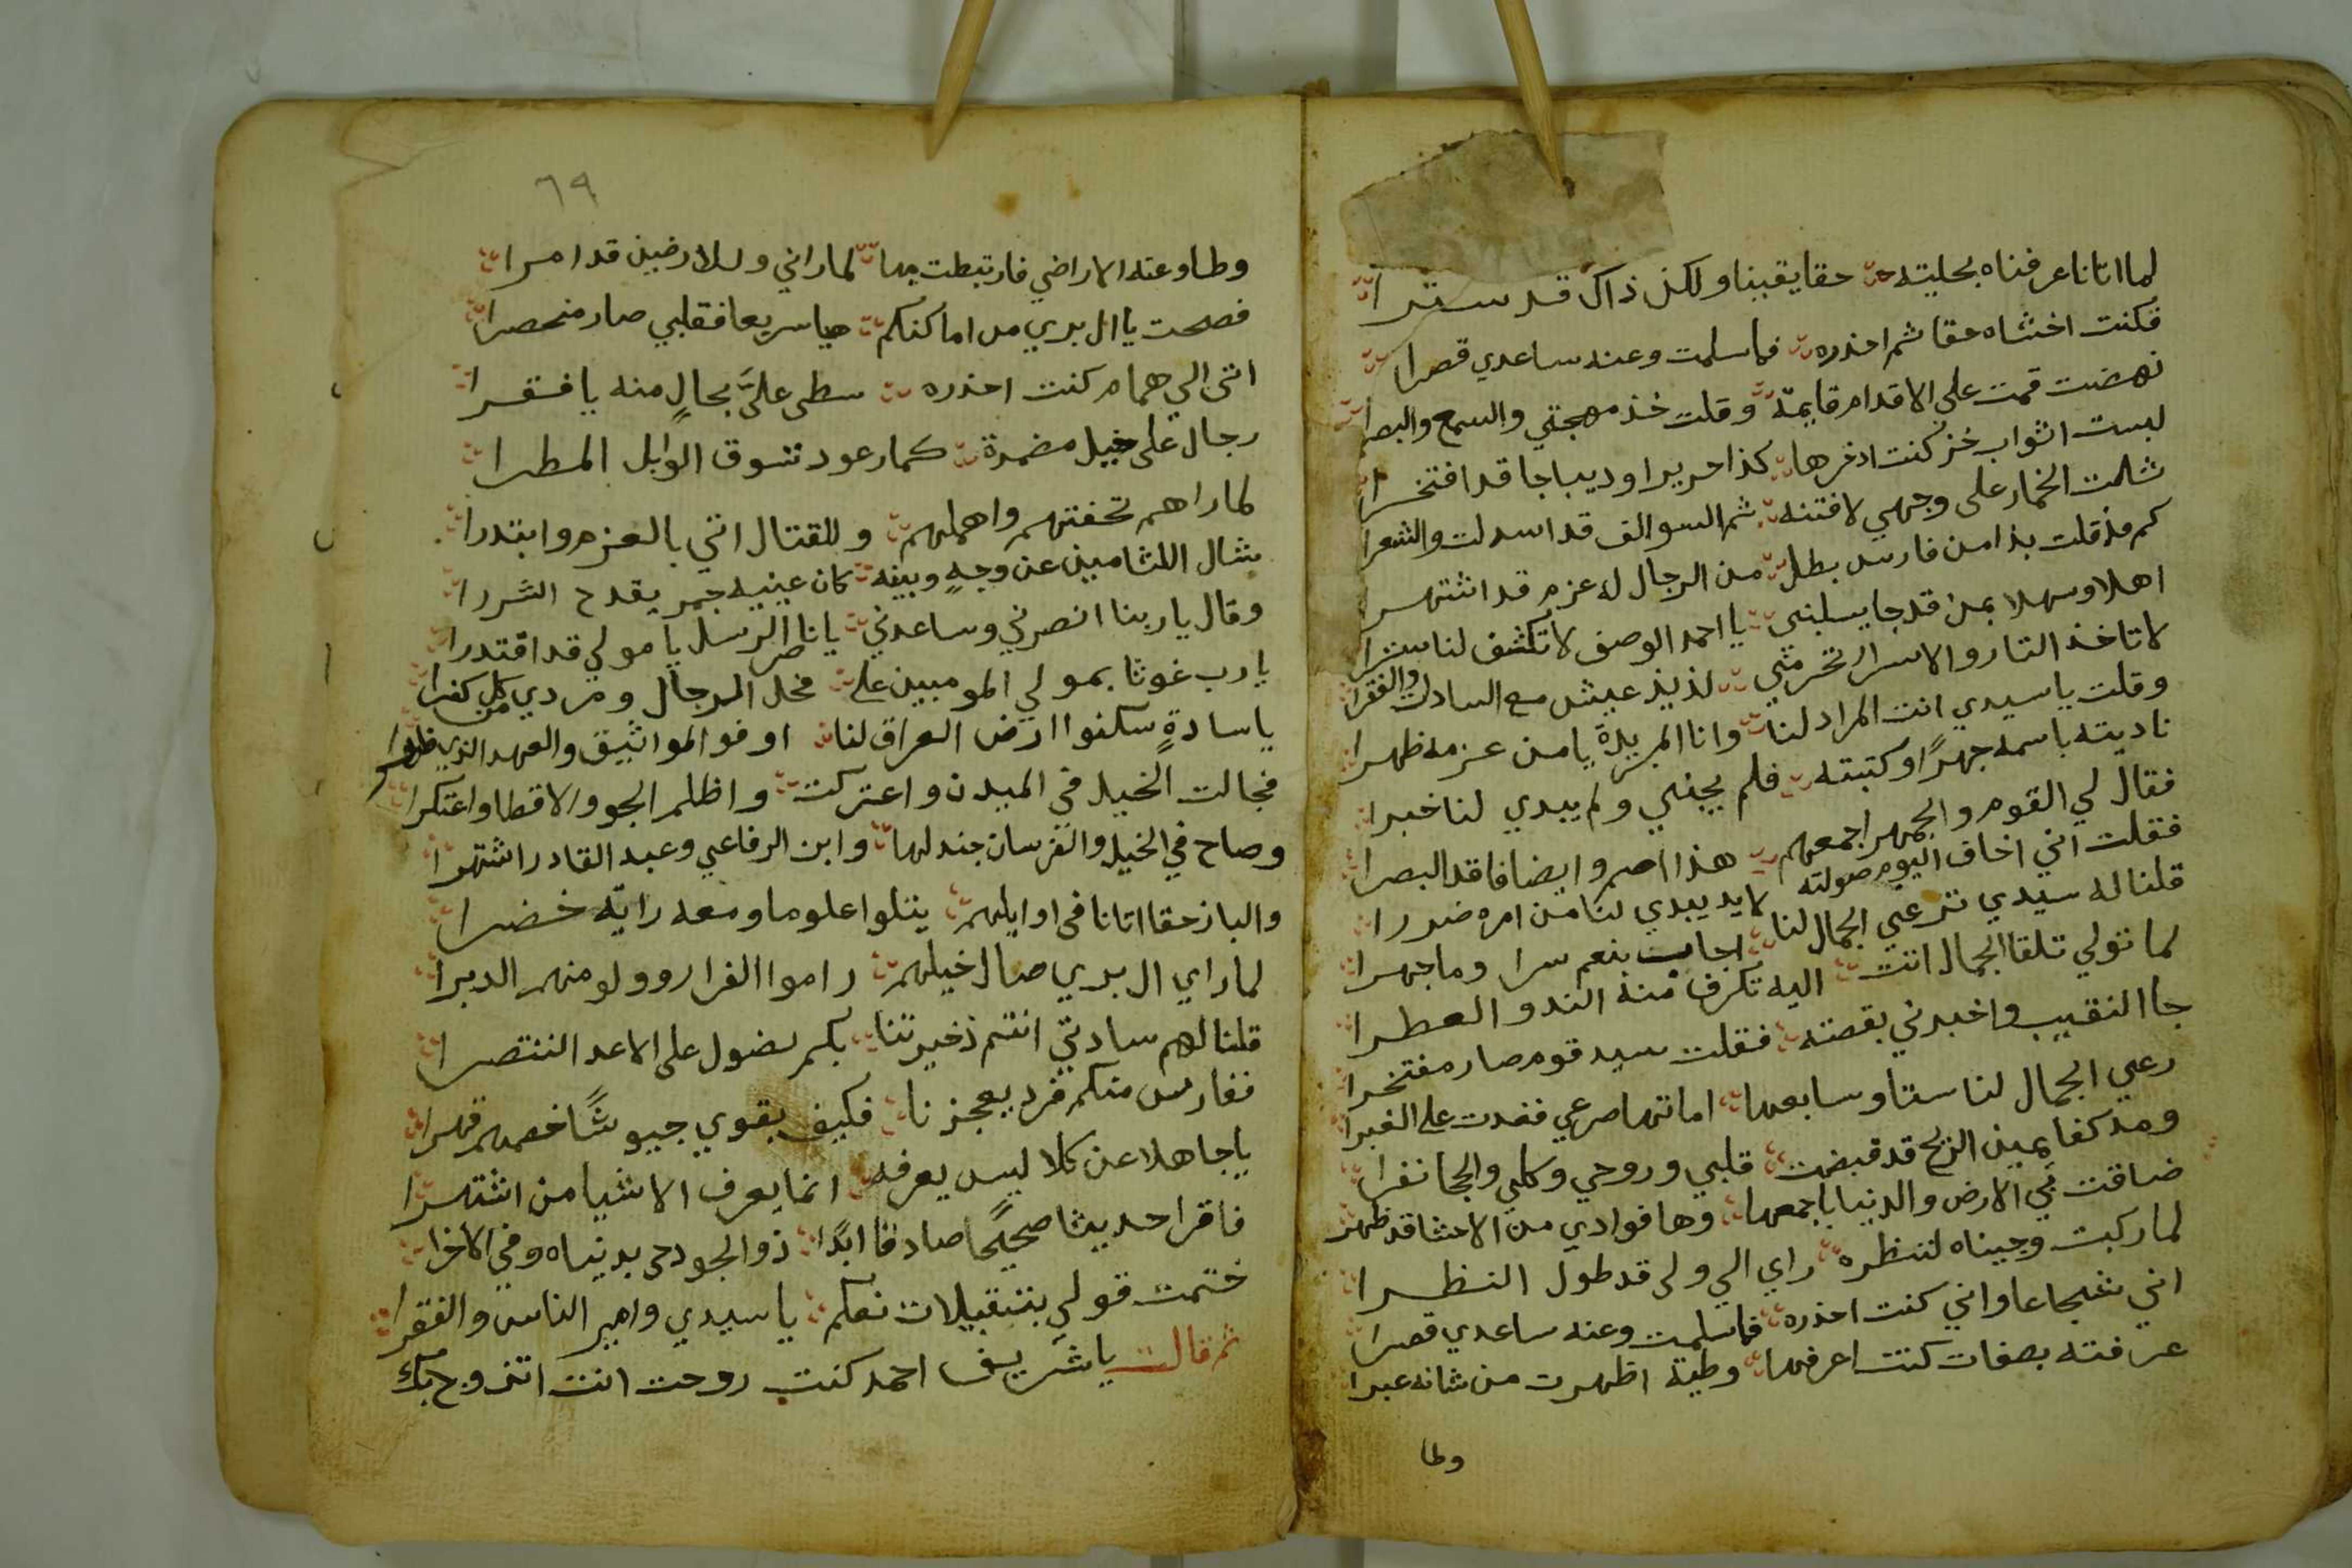 لما اتانا عرفناه بحليته حقا يقينا ولكن ذاك قد سترا
فكنت اخشاه حقا ثم احذره فما سلمت وعنه ساعدي قصرا
نهضت قمت على الاقدام قايمة وقلت خذ مهجتي والسمع والبصرا
لبست اثواب خز كنت ادخرها كذا حريرا وديباجا قد افتخرا
شلمت الخمار على وجهي لافتنه ثم السوالف قد اسدلت والشعرا
كم مذ قلت بذا من فارس بطل من الرجال له عزم قد اشتهرا
اهلا وسهلا بمن قد جا يسلبني يا احمد الوصف لا تكشف لنا سترا
لا تاخذ التار والاسرار تحرمني لذيذ عيش مع السادات والفقرا
وقلت يا سيدي انت المراد لنا وانا المريدة يا من عزمه ظهرا
ناديته باسمه جهرًا وكتبته فلم يجبني ولم يبدي لنا خبرا
فقال لي القوم والجمهر اجمعهم هذا اصم وايضا فاقد البصرا
فقلت اني اخاف اليوم صولته لابد يبدي لنا من امره ضررا
قلنا له سيدي ترعي الجمال لنا اجاب بنعم سرا وما جهرا
لما تولي تلقا الجمال اتت اليه تكرف منه الند والعطرا
جا النقيب واخبرني بقصته فقلت سيد قوم صار مفتخرا
رعي الجمال لنا ستا وسابعها اماتها صرعي ففدت على الغبرا
ومد كفا يمين الريح قد قبضت قلبي وروحي وكلي والحجا نفرا
ضاقت بي الارض والدنيا باجمعها وها فوادي من الاحشا قد ظهر
لما ركبت وجيناه لننظره راي الي ولي قد طول النظرا
اني شجاعا واني كنت احذره فما سلمت وعنه ساعدي قصرا
عرفته بصفات كنت اعرفها وطية اظهرت من شانه عبرا
وطا
٦٩
وطاوعته الاراضي فارتبطت بها لما راني وللارضين قد امرا
فصحت يا ال بري من اماكنكم هيا سريعا فقلبي صار منحصرا
اتى الي همام كنت احذره سطى عليَّ بحالٍ منه يا فقرا
رجال على خيل مضمرة كما رعود تسوق الوابل المطرا
لما راهم تحفتهم واهملهم وللقتال اتي بالعزم وابتدرا
شال اللثامين عن وجهٍ وبينه كان عينيه جمر يقدح الشررا
وقال يا ربنا انصرني وساعدني يا ناصر الرسل يا مولي قد اقتدرا
يارب غوثا بمولي المومبين علي مخل الرجال ومردي كل من كفرا
يا سادةٍ سكنوا ارض العراق لنا اوفو المواثيق والعهد الذي ظهرا
فجالت الخيل في الميدن واعتركت واظلم الجو والاقطا واعتكرا
وصاح في الخيل والفرسان جندلها وابن الرفاعي وعبد القادر اشتهرا
والباز حقا اتانا في اوايلهم يتلوا علوما ومعه راية خضرا
لما راي ال بري صال خيلهم راموا الفرار وولو منهم الدبرا
قلنا لهم سادتي انتم ذخيرتنا بكم نصول على الاعد اننتصرا
ففارس منكم فرد يعجزنا فكيف يقوي جيوشًا خصمهم قهرا
يا جاهلا عن كلا ليس يعرفه انما يعرف الاشيا من اشتهرا
فاقرا حديثا صحيحًا صادقا ابدًا ذو الجود حي بدنياه وفي الاخرا
ختمت قولي بتقبيلات نعكم يا سيدي وامير الناس والفقرا
ثم قالت يا شريف احمد كنت روحت انت اتزوج بك